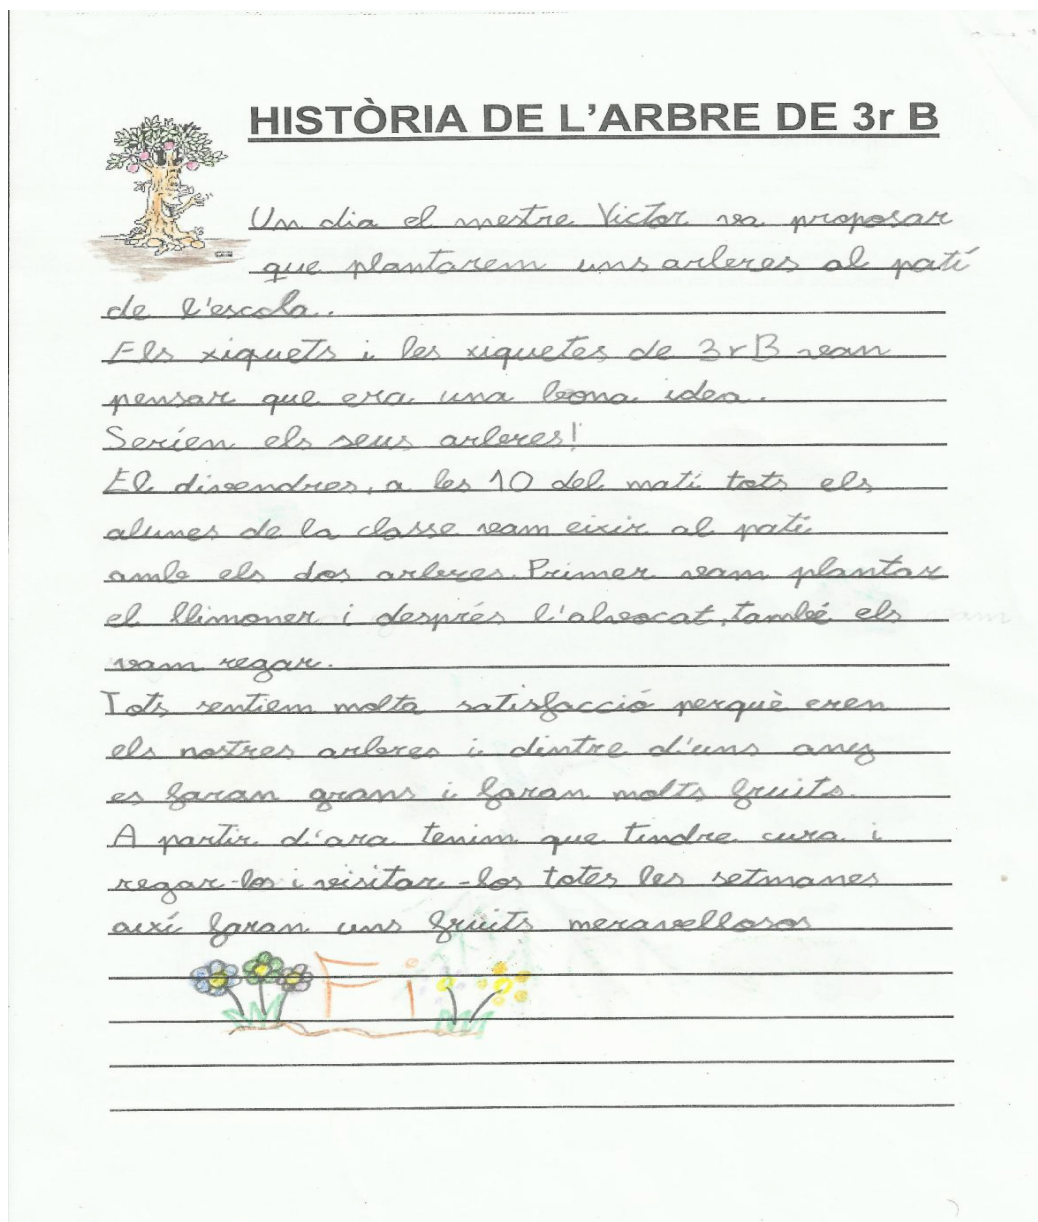 HISTÒRIA DE L'ARBRE DE 3r B
Un dia el mestre Victor va proposar
que plantarem uns arbres al pati
de l'escola.
Els xiquets i les xiquetes de 3r B van
pensar que era una bona idea.
Serien els seus arbres!
El divendres, a les 10 del matí tots els
alumnes de la classe vam eixir al pati
amb els dos arbres. Primer vam plantar
el llimoner i després l'alvocat, també els
vam regar.
Tots sentiem molta satisfacció perquè eren
els nostres arbres i dintre d'uns anys
es faran grans i faran molts fruits.
A partir d'ara tenim que tindre cura i
regar-los i visitar-los totes les setmanes
així faran uns fruits meravellosos
Fi